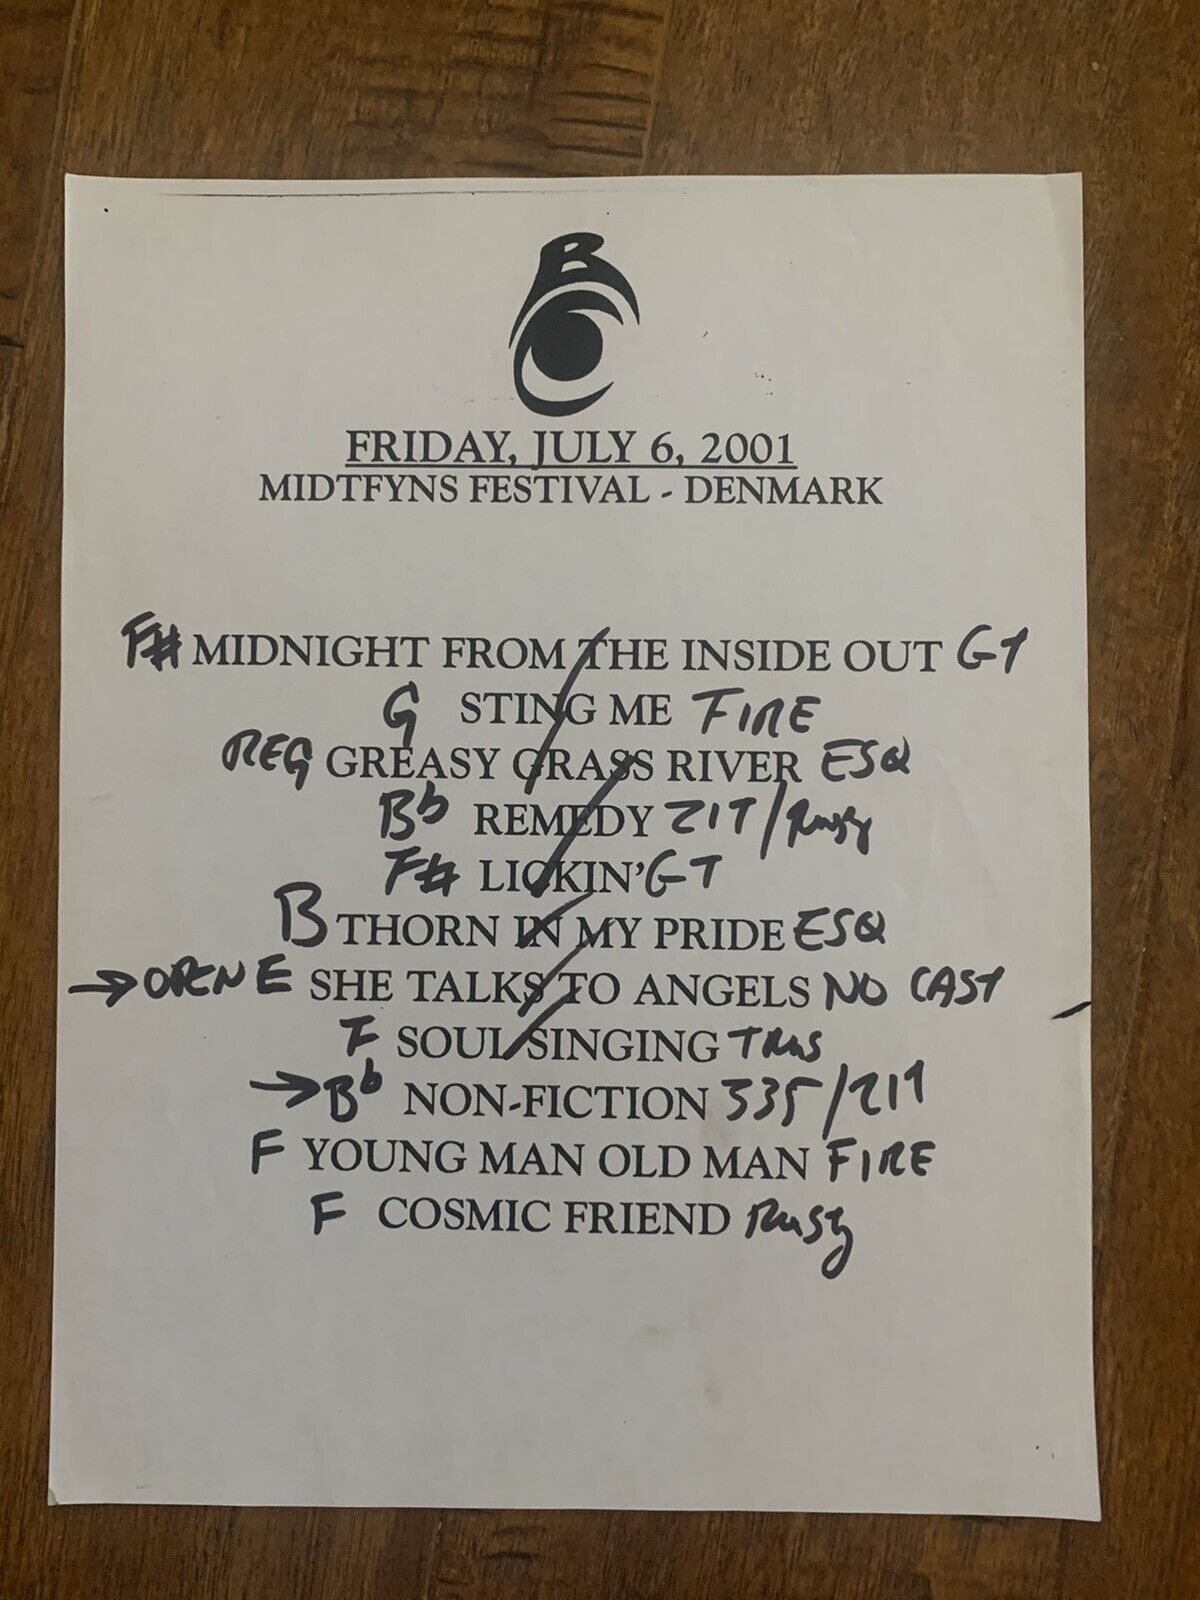 B
FRIDAY, JULY 6, 2001
MIDTFYNS FESTIVAL - DENMARK
F# MIDNIGHT FROM THE INSIDE OUT GT
G STING ME FIRE
REG GREASY GRASS RIVER ESQ
Bb REMEDY ZIT/Rusty
F# LICKIN' GT
B THORN IN MY PRIDE ESQ
→ OPEN E SHE TALKS TO ANGELS NO CAST
F SOUL SINGING
→ Bb NON-FICTION 335/
F YOUNG MAN OLD MAN FIRE
F COSMIC FRIEND Rusty